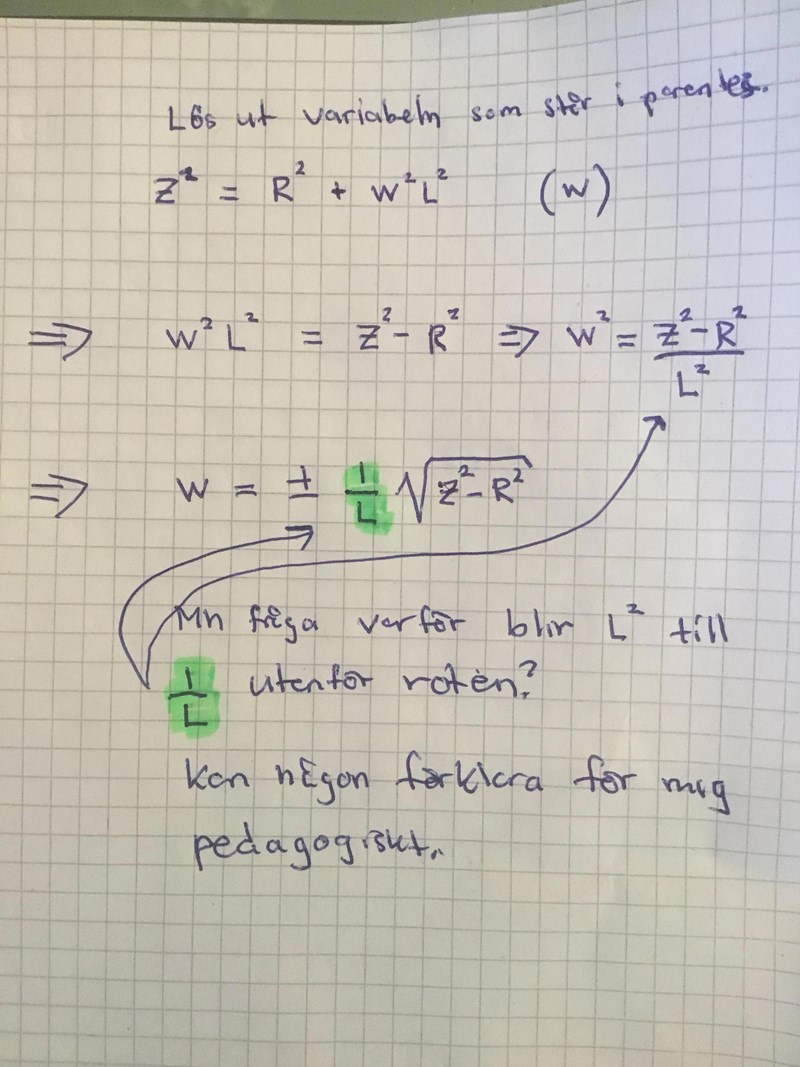 Lös ut variabeln som står i parentes.
Z² = R² + W²L² (W)
⇒ W²L² = Z² - R² ⇒ W² = (Z² - R²)/L²
⇒ W = ± 1/L √(Z² - R²)
Mn fråga varför blir L² till
1/L utenför roten?
Kan någon förklara för mig
pedagogiskt.